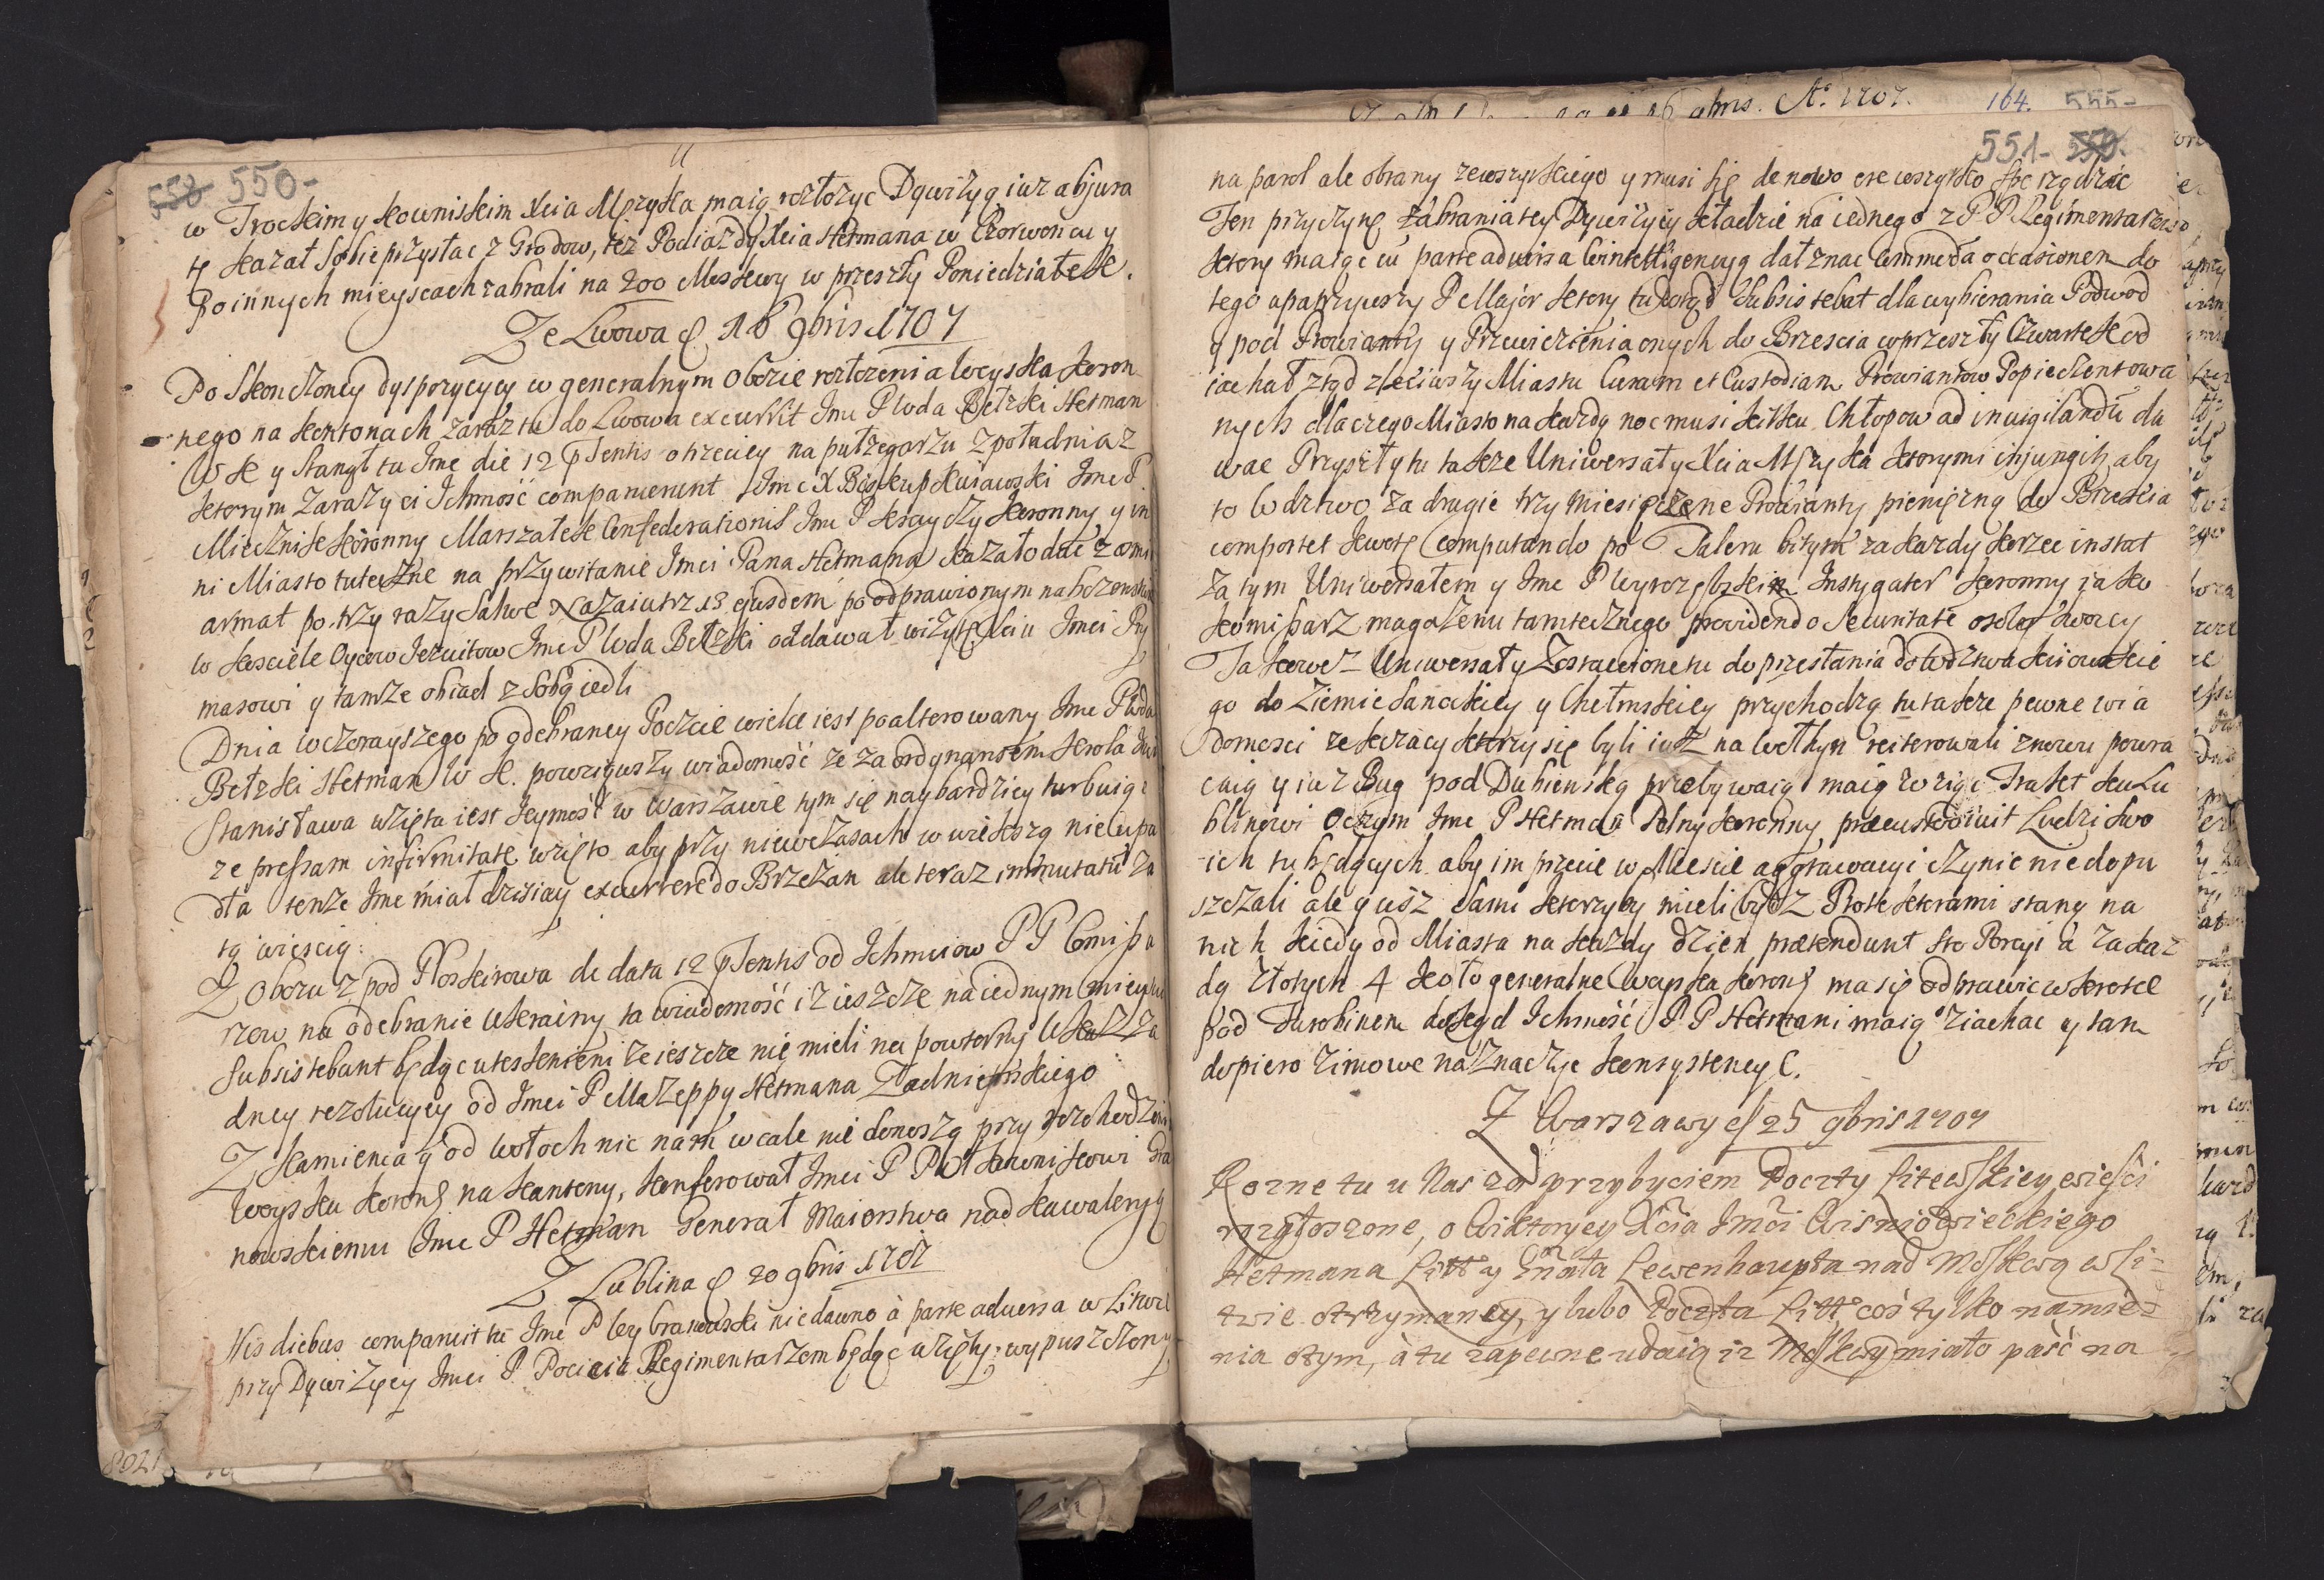 550-
w Trockim y Kowniskim Xcia Męzyka maią rozłozyc Dywizyą iuz abjura
tę kazał sobie przysłac z Grodow, tez Podiazdy Xcia Hetmana w Czerwoncu y
Po innych mieyscach zabrali na 200 Moskwy w przeszły Poniedziałek.
Ze Lwowa d. 16 9bris 1707
Po skonczoney dyspozycyey w generalnym Obozie rozłozenia Woyska Koron
nego na Kontonach zaraz tu do Lwowa excurrit Jmc P Wda Bełzki Hetman
W K y stanął tu Jmc die 12 psentis o trzeciey na pułzegarzu z południa z
ktorym zaraz y ci Ichmość comparuerunt Jmc X Biskup Kuiawski Jmc P.
Miecznik Koronny Marszałek Confederationis Jmc P Kraychy Koronny y in
ni Miasto tuteczne na przywitanie Jmci Pana Hetmana kazało dac z armi
armat po trzy razy Salwe Nazaiutrz 13 ejusdem po odprawionym nabozenstwie
w Kosciele Oycow Jezuitow Jmc P Wda Bełzki oddawał wizytę Xciu Jmci Pry
masowi y tamze obiad z sobą iedli
Dnia wczorayszego po odebraney Poczcie wielce iest poalterowany Jmc P Wda
Bełzki Hetman W K. powziąwszy wiadomość ze za ordynansem Krola Jmci
Stanisława wzięta iest Jeymość w Warszawie tym się naybardziey turbuiąc
ze pressam infirmitate wzięto aby przy niewczasach w wiekszą nie wpa
dła tenze Jmc miał dzisiay excurrere do Brzezan ale teraz immutatu za
tą wiescią:
Z Obozu z pod Ploskirowa de data 12 psentis od Ichmciow P P Comissa
rzow na odebranie Ukrainy ta wiadomość iz ieszcze na iednym mieyscu
subsistebant będąc utesknieni ze ieszcze nie mieli na powtorny
dney rezolucyey od Jmci P Mazeppy Hetmana Zadnieprskiego
Z Kamienca y od Wołoch nic nam wcale nie donoszą przy rozchodzeniu
Woyska Koron na Kantony, konferował Jmci P Pułkownikowi
nowskiemu Jmc P Hetman Generał Maiorstwa nad Kawaleryą
Z Lublina d 20 9bris 1707
His diebus comparuit tu Jmc P Wybranowski niedawno à parte adversa w Litwie
przy Dywizyey Jmci P Pocieia Regimentarzem będąc wzięty: wypuszczony
164. 555-
551-
na parol ale obrany zewszystkiego y musi się de novo we wszystko sporządzić
Ten przyczynę zabrania tey Dywizyey kładzie na iednego z P P Regimentarzow
ktory maiąc cu parte adversa Cointelligencyą dał znac commoda occasionem do
tego apatrzywszy P Major ktory tu dotąd Subsistebat dla wybierania Podwod
y pod Prowianty y Przewiezienia onych do Brzescia w przeszły Czwartek od
iachał ztąd zleciwszy Miastu Curam et Custodiam Prowiantow Popieczentowa
nych dla czego Miasto na kazdą noc musi kilku Chłopow ad invigilandu da
wac Przyszły tu takze Uniwersały Xcia Mszyka ktorymi injungit, aby
to Wdztwo za drugie trzy miesięczne Prowianty pieniężną do Brzescia
comportet kwotę computando po Talera bitym za kazdy korzec instat
za tym Uniwersałem y Jmc P Instygator Koronny iako
Komissarz magazenu tamtecznego providendo Securitate osoby swoiey
Takowez Uniwersały Zostawione tu do przesłania do Wdztwa Kiiowskie
go do Ziemie Sanockiey y Chełmskiey przychodzą tu takze pewne wia
domosci ze Kozacy ktorzy się byli iusz na Wołhyn reiterowali znowu powra
caią y iuz Bug pod Dubienką przebywaią maią wziąć Trakt ku Lu
blinowi Oczym Jmc P Hetman Polny Koronny praecustodiuit Ludzi swo
ich tu będących aby im przecie w Miescie aggrawacyi czynic nie dopu
szczali ale y cisz sami ktorzyby mieli bydz Protektorami staną na
nich kiedy od Miasta na kazdy dzien praetendunt sto Porcyi a za kaz
dą złotych 4 Koło generalne Woyska Koron ma się odprawic wkrotce
pod Turobinem dokąd Ichmość P P Hetmani maią ziachac y tam
dopiero zimowe naznaczyc konsystency C.
Z Warszawy d 25 9bris 1707
Rozne tu u Nas za przybyciem Poczty Litewskiey wiesci
rozgłoszone, o Wiktoryey Xcia Jmci Wisniowieckiego
Hetmana Litt y Gnała Lewenhaupta nad Moskwą w Li=
twie otrzymaney, y lubo Poczta Litt, coś tylko namie=
nia otym, à tu zapewne udaią iz Moskwy miało paść na